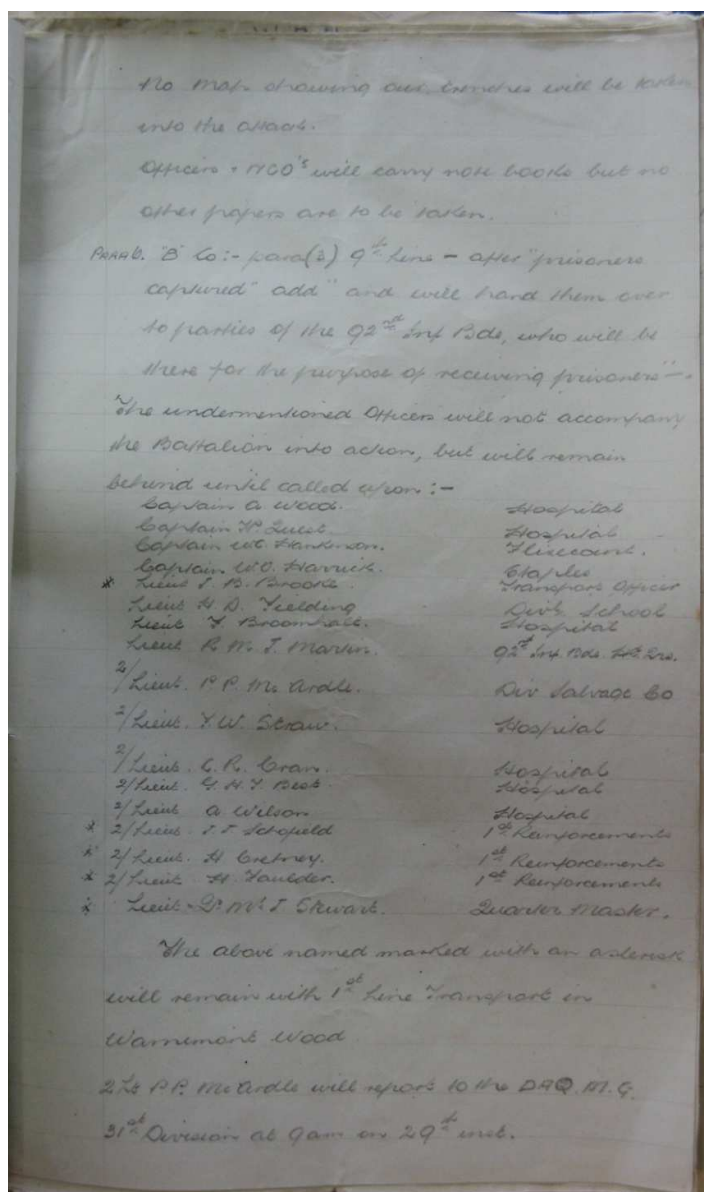 No map showing our trenches will be taken
into the attack.
Officers & NCO's will carry note books but no
other papers are to be taken.
PARA 6. "B" Co:- para(3) 9th Line - after "prisoners
captured" add "and will hand them over
to parties of the 92nd Inf Bde, who will be
there for the purpose of receiving prisoners" -.
The undermentioned Officers will not accompany
the Battalion into action, but will remain
behind until called upon :-
Captain A. Wood. Hospital
Captain H. Hospital
Captain
Captain Etaples
* Lieut J. B. Brooke. Transport Officer
Lieut H. D. Fielding Divl School
Lieut F Broomhall. Hospital
Lieut R. M. J. Martin. 92nd Inf. Bde. Hd. Qrs.
2/Lieut. P. P. McArdle. Div Salvage Co
2/Lieut. F. W. Straw. Hospital
2/Lieut. C. R. Cran. Hospital
2/Lieut. G. H. T. Best. Hospital
2/Lieut A Wilson Hospital
* 2/Lieut. J. J. Schofield 1st Reinforcements
* 2/Lieut. H. Cretney. 1st Reinforcements
* 2/Lieut H. Faulder. 1st Reinforcements
* Lieut & Qr Mr J. Stewart. Quarter Master.
The above named marked with an asterisk
will remain with 1st Line Transport in
Warnimont Wood
2Lt P.P. McArdle will report to the DAQ.M.G.
31st Division at 9am on 29th inst.